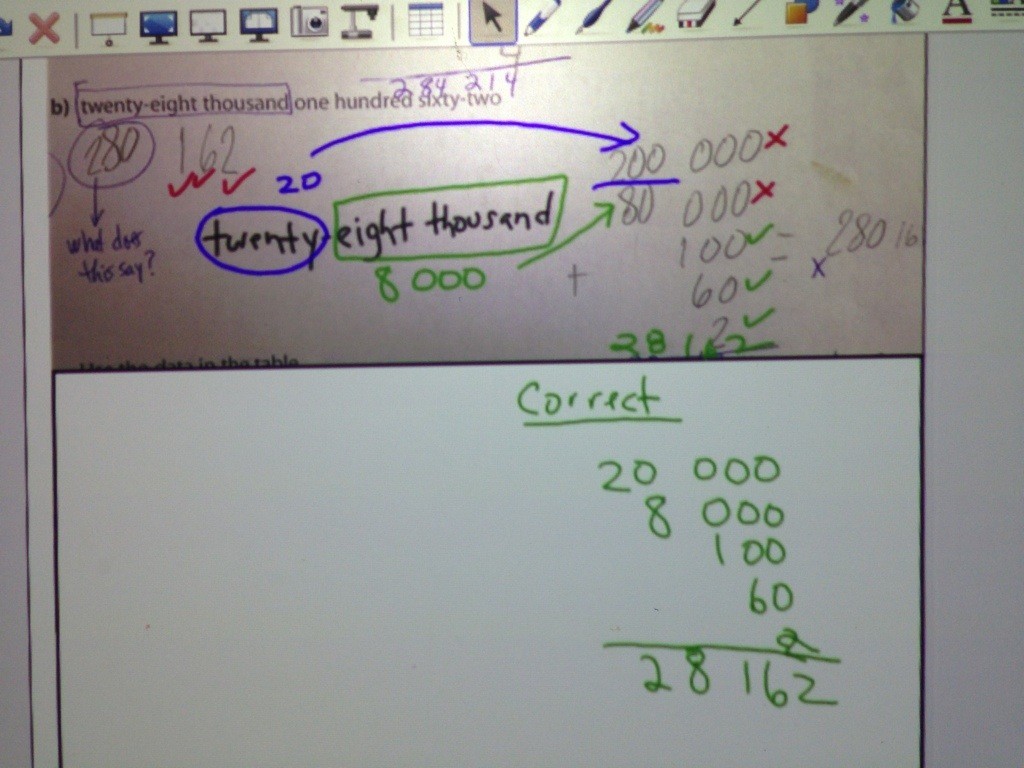 A
284 214
b) twenty-eight thousand one hundred sixty-two
280 162
200 000 x
20
80 000 x
twenty-eight thousand
100 =
280 16
x
what does
this say?
8 000
+
60
2
28 162
Use the data in the table
Correct
20 000
8 000
100
60
2
28 162